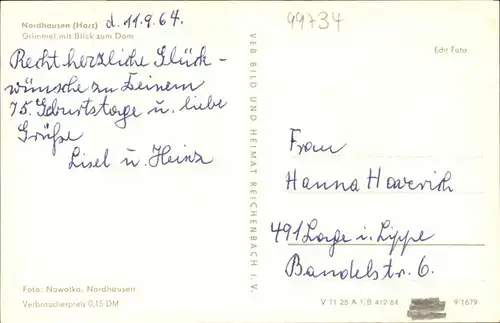 Nordhausen (Harz) d. 11.9.64.
Grimmel mit Blick zum Dom
Recht herzliche Glück-
wünsche zu Deinem
75. Geburtstage u. liebe
Grüße
Lisel u. Heinz
Foto: Nawatka, Nordhausen
Verbraucherpreis 0,15 DM
VEB BILD UND HEIMAT REICHENBACH I. V.
99734
Echt Foto
Frau
Hanna
491 Lage i. Lippe
Bandelstr. 6.
V 11 28 A 1 B 412 64
9 1679